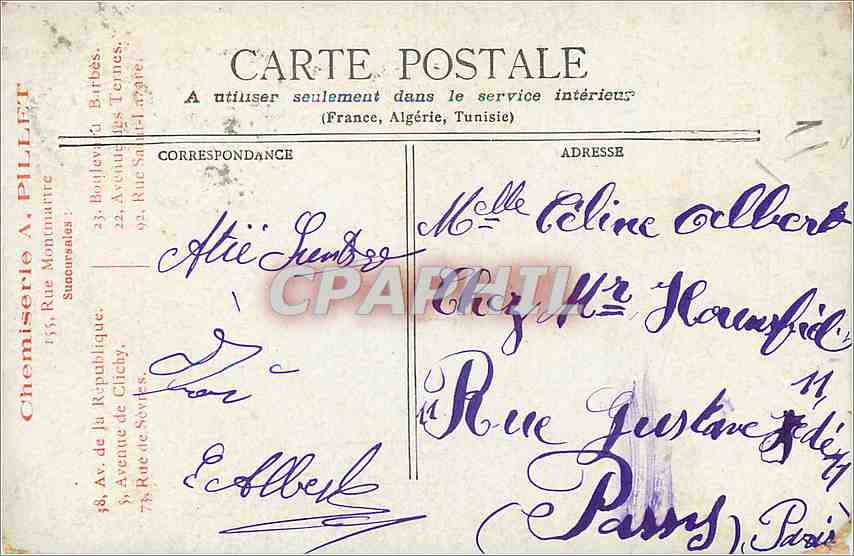 CARTE POSTALE
A utiliser seulement dans le service intérieur
(France, Algérie, Tunisie)
Chemiserie A. PILLET
155, Rue Montmartre
Succursales :
38, Av. de la République.
5, Avenue de Clichy,
73, Rue de Sèvres.
23, Boulevard Barbès.
22, Avenue des Ternes.
92, Rue Saint-Lazare.
CORRESPONDANCE
E Albert
ADRESSE
Melle Céline Albert
Chez Mr
11 Rue Gustave 11
(Passy) Paris
CPARPHIL